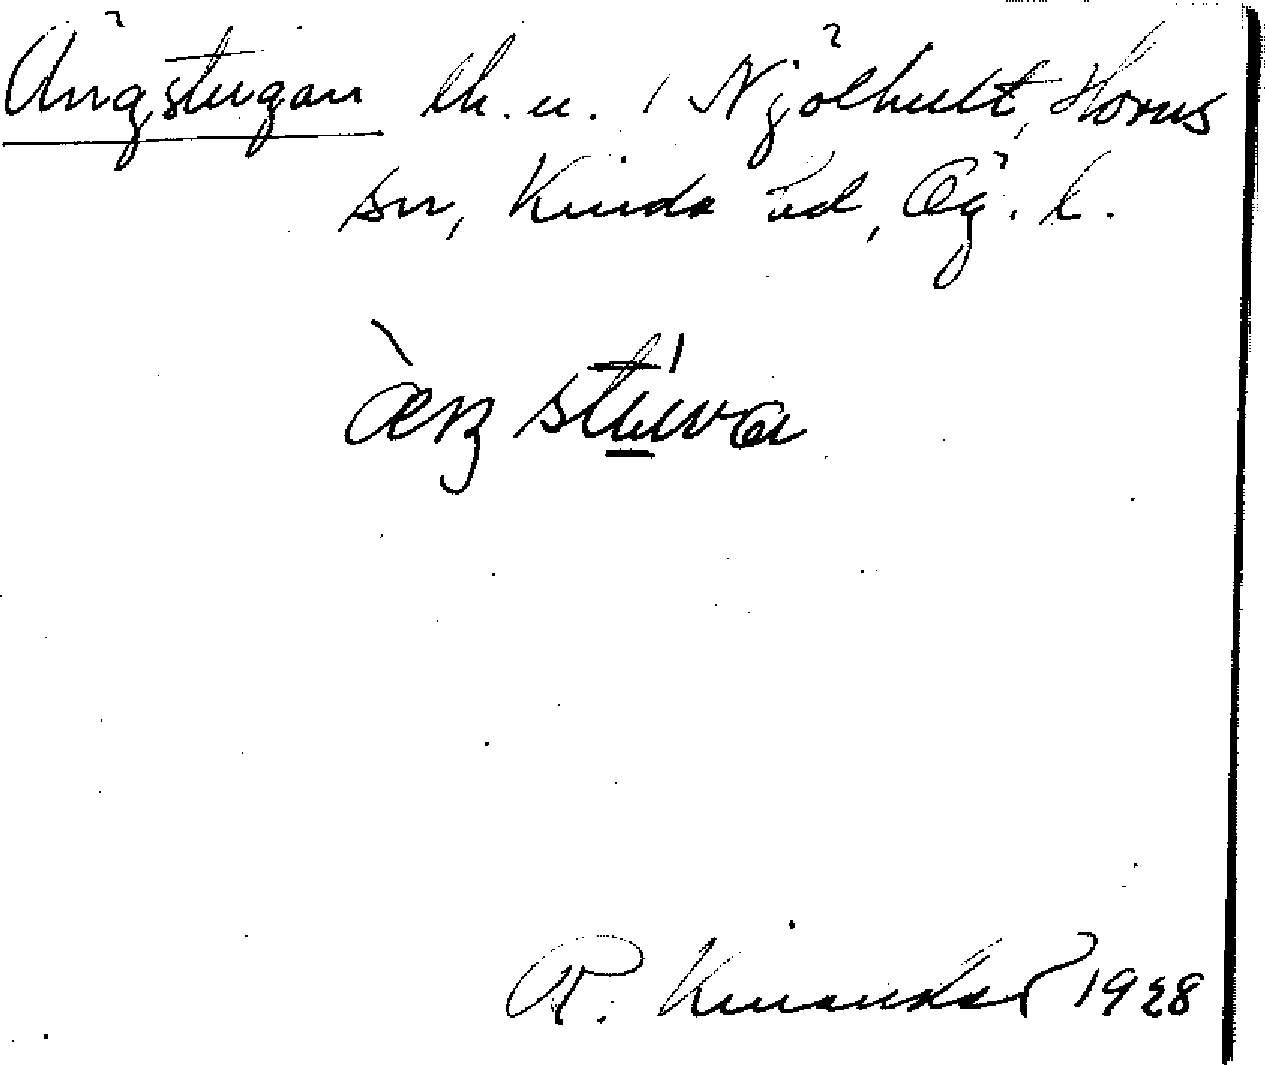 Ängstugan lh. u. i Njölhult, Horns
sn, Kinda hd, Ög. l.
ærj stuwa
R. Kinander 1928